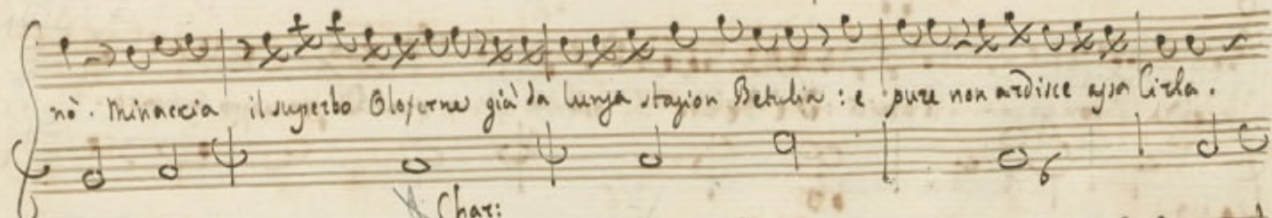 nò. Minaccia il superbo Oloferne già da lunga stagion Betulia: e pure non ardisce assalirla.
6
Char: